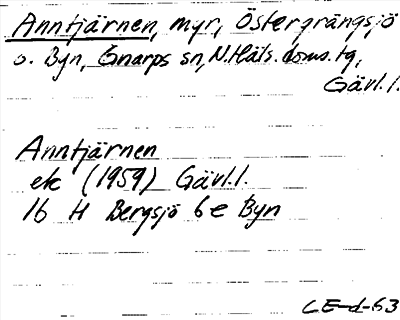 Anntjärnen, myr, Östergrängsjö
o. Byn, Gnarps sn, N.Häls. doms. tg,
Gävl.l.
Anntjärnen
ek (1959) Gävl.l.
16 H Bergsjö 6e Byn
CE-d-63